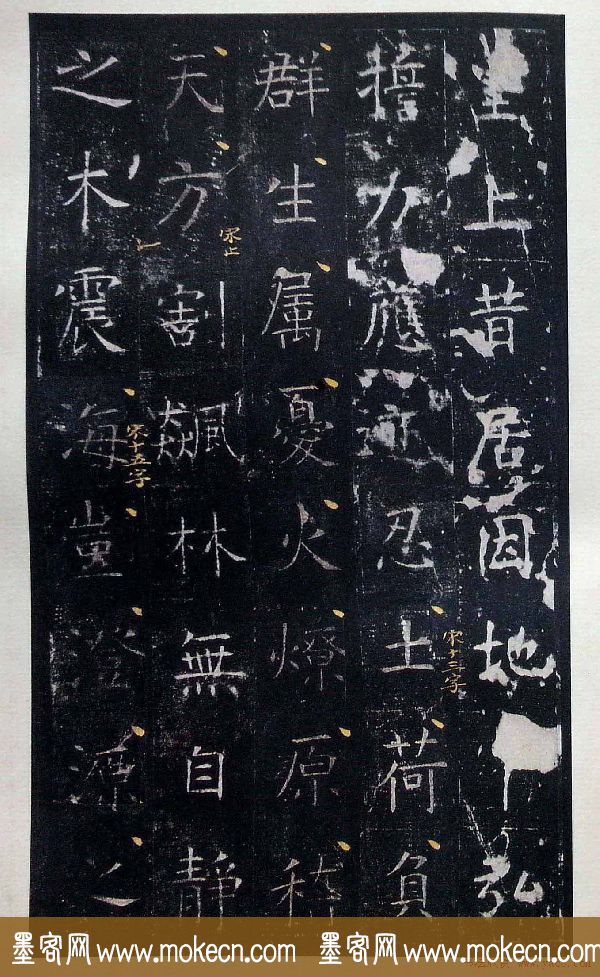 上昔居因地弘
擔力應迹忍土荷負
群生属憂火燎原稽
天方割飊林無自靜
之木震海豈澄源之
宋十三字
宋止
宋十五字
墨客网 www.mokecn.com 墨客网 www.mokecn.com